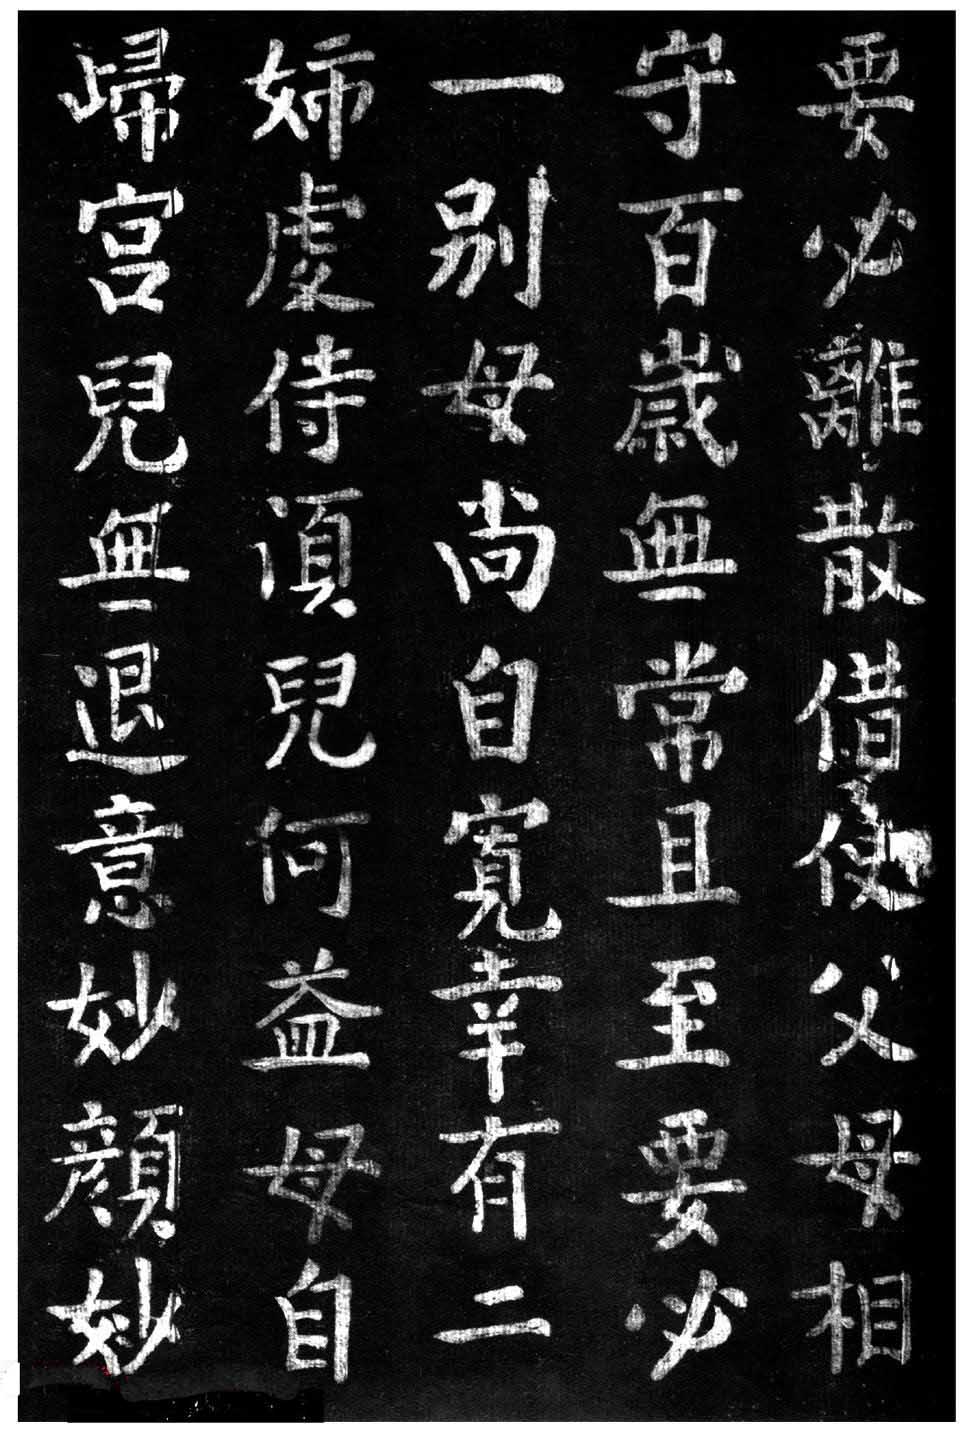 要必離散借使父母相
守百歳無常且至要必
一別母尚自寬幸有二
姉處侍須兒何益母自
歸宮兒無退意妙顏妙